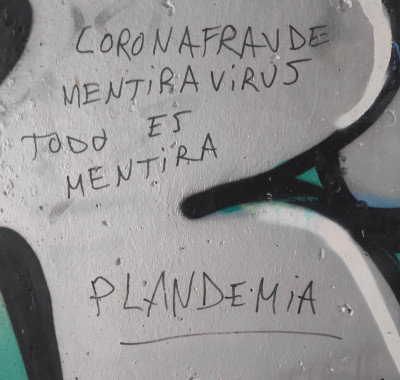 CORONAFRAUDE
MENTIRAVIRUS
TODO ES
MENTIRA
PLANDEMIA